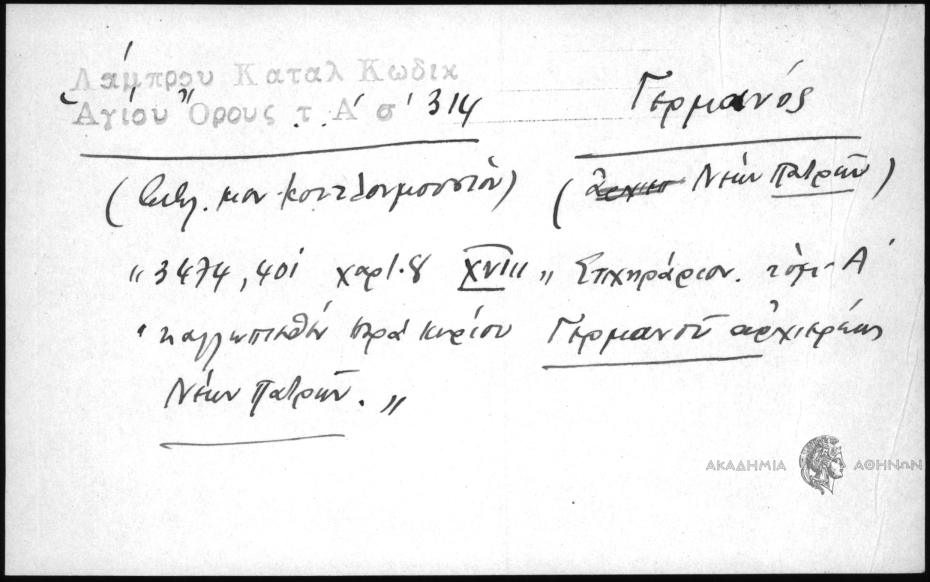 Λάμπρου Καταλ Κωδικ
Ἁγίου Ὄρους τ. Α' σ' 314
Γερμανός
(Βιβλ. μον. Κουτλουμουσίου)
(ἀρχιεπ Νέων Πατρῶν)
" 3474, 401 χαρτ. 8 XVIII " Στιχηράριον. τόμ. Α'
" καλλωπισθὲν παρὰ κυρίου Γερμανοῦ ἀρχιερέως
Νέων Πατρῶν. "
ΑΚΑΔΗΜΙΑ ΑΘΗΝΩΝ